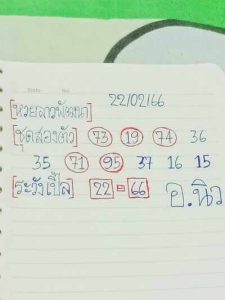 22/02/66
[หวยลาวพัฒนา]
[ชุดสองตัว] 73 19 74 36
35 71 95 37 16 15
[ระวังเบิ้ล] 22 = 66 อ.นิว